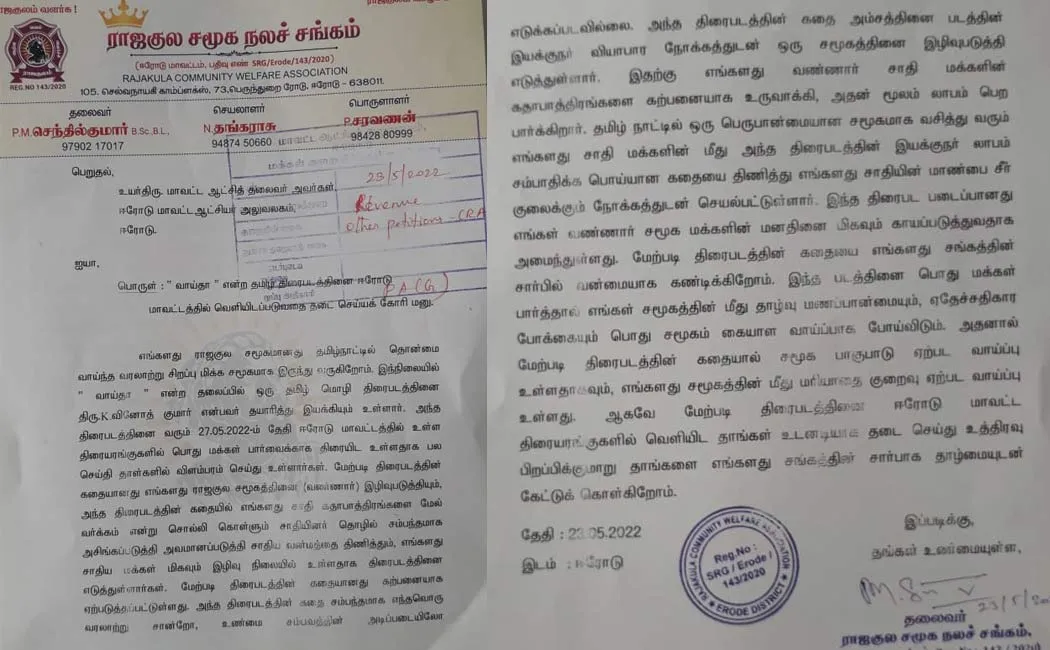 ராஜகுலம் வளர்க !
ராஜகுல சமூக நலச் சங்கம்
(ஈரோடு மாவட்டம், பதிவு எண் SRG/Erode/143/2020)
RAJAKULA COMMUNITY WELFARE ASSOCIATION
REG.NO 143/2020
105. செல்வநாயகி காம்ப்ளக்ஸ், 73,பெருந்துறை ரோடு, ஈரோடு - 638011.
தலைவர் செயலாளர் பொருளாளர்
P.M.செந்தில்குமார் B.Sc.B.L., N.தங்கராசு P.சரவணன்
97902 17017 94874 50660 98428 80999
பெறுதல்,
23/5/2022
உயர்திரு. மாவட்ட ஆட்சித் தலைவர் அவர்கள்,
ஈரோடு மாவட்டஆட்சியர் அலுவலகம்,
Revenue
ஈரோடு.
other petitions - CRA
ஐயா,
PA(G)
பொருள் : " வாய்தா " என்ற தமிழ் திரைபடத்தினை ஈரோடு
மாவட்டத்தில் வெளியிடப்படுவதை தடை செய்யக் கோரி மனு.
எங்களது ராஜகுல சமூகமானது தமிழ்நாட்டில் தொன்மை
வாய்ந்த வரலாற்று சிறப்பு மிக்க சமூகமாக இருந்து வருகிறோம். இந்நிலையில்
" வாய்தா " என்ற தலைப்பில் ஒரு தமிழ் மொழி திரைபடத்தினை
திரு.K.வினோத் குமார் என்பவர் தயாரித்து இயக்கியும் உள்ளார். அந்த
திரைபடத்தினை வரும் 27.05.2022-ம் தேதி ஈரோடு மாவட்டத்தில் உள்ள
திரையரங்குகளில் பொது மக்கள் பார்வைக்காக திரையிட உள்ளதாக பல
செய்தி தாள்களில் விளம்பரம் செய்து உள்ளார்கள். மேற்படி திரைபடத்தின்
கதையானது எங்களது ராஜகுல சமூகத்தினை (வண்ணார்) இழிவுபடுத்தியும்,
அந்த திரைபடத்தின் கதையில் எங்களது சாதி கதாபாத்திரங்களை மேல்
வர்க்கம் என்று சொல்லி கொள்ளும் சாதியினர் தொழில் சம்பந்தமாக
அசிங்கப்படுத்தி அவமானப்படுத்தி சாதிய வன்மத்தை திணித்தும், எங்களது
சாதிய மக்கள் மிகவும் இழிவு நிலையில் உள்ளதாக திரைபடத்தினை
எடுத்துள்ளார்கள். மேற்படி திரைபடத்தின் கதையானது கற்பனையாக
ஏற்படுத்தப்பட்டுள்ளது. அந்த திரைபடத்தின் கதை சம்பந்தமாக எந்தவொரு
வரலாற்று சான்றோ, உண்மை சம்பவத்தின் அடிப்படையிலோ
எடுக்கப்படவில்லை. அந்த திரைபடத்தின் கதை அம்சத்தினை படத்தின்
இயக்குநர் வியாபார நோக்கத்துடன் ஒரு சமூகத்தினை இழிவுபடுத்தி
எடுத்துள்ளார். இதற்கு எங்களது வண்ணார் சாதி மக்களின்
கதாபாத்திரங்களை கற்பனையாக உருவாக்கி, அதன் மூலம் லாபம் பெற
பார்க்கிறார். தமிழ் நாட்டில் ஒரு பெருபான்மையான சமூகமாக வசித்து வரும்
எங்களது சாதி மக்களின் மீது அந்த திரைபடத்தின் இயக்குநர் லாபம்
சம்பாதிக்க பொய்யான கதையை திணித்து எங்களது சாதியின் மாண்பை சீர்
குலைக்கும் நோக்கத்துடன் செயல்பட்டுள்ளார். இந்த திரைபட படைப்பானது
எங்கள் வண்ணார் சமூக மக்களின் மனதினை மிகவும் காயப்படுத்துவதாக
அமைந்துள்ளது. மேற்படி திரைபடத்தின் கதையை எங்களது சங்கத்தின்
சார்பில் வன்மையாக கண்டிக்கிறோம். இந்த படத்தினை பொது மக்கள்
பார்த்தால் எங்கள் சமூகத்தின் மீது தாழ்வு மணப்பான்மையும், ஏதேச்சதிகார
போக்கையும் பொது சமூகம் கையாள வாய்ப்பாக போய்விடும். அதனால்
மேற்படி திரைபடத்தின் கதையால் சமூக பாகுபாடு ஏற்பட வாய்ப்பு
உள்ளதாகவும், எங்களது சமூகத்தின் மீது மரியாதை குறைவு ஏற்பட வாய்ப்பு
உள்ளது. ஆகவே மேற்படி திரைபடத்தினை ஈரோடு மாவட்ட
திரையரங்குகளில் வெளியிட தாங்கள் உடனடியாக தடை செய்து உத்திரவு
பிறப்பிக்குமாறு தாங்களை எங்களது சங்கத்தின் சார்பாக தாழ்மையுடன்
கேட்டுக் கொள்கிறோம்.
இப்படிக்கு,
தேதி : 23.05.2022
தங்கள் உண்மையுள்ள,
இடம் : ஈரோடு
RAJAKULA COMMUNITY WELFARE ASSOCIATION
Reg.No :
SRG / Erode /
143/2020
ERODE DISTRICT
23/5/20
தலைவர்
ராஜகுல சமூக நலச் சங்கம்,